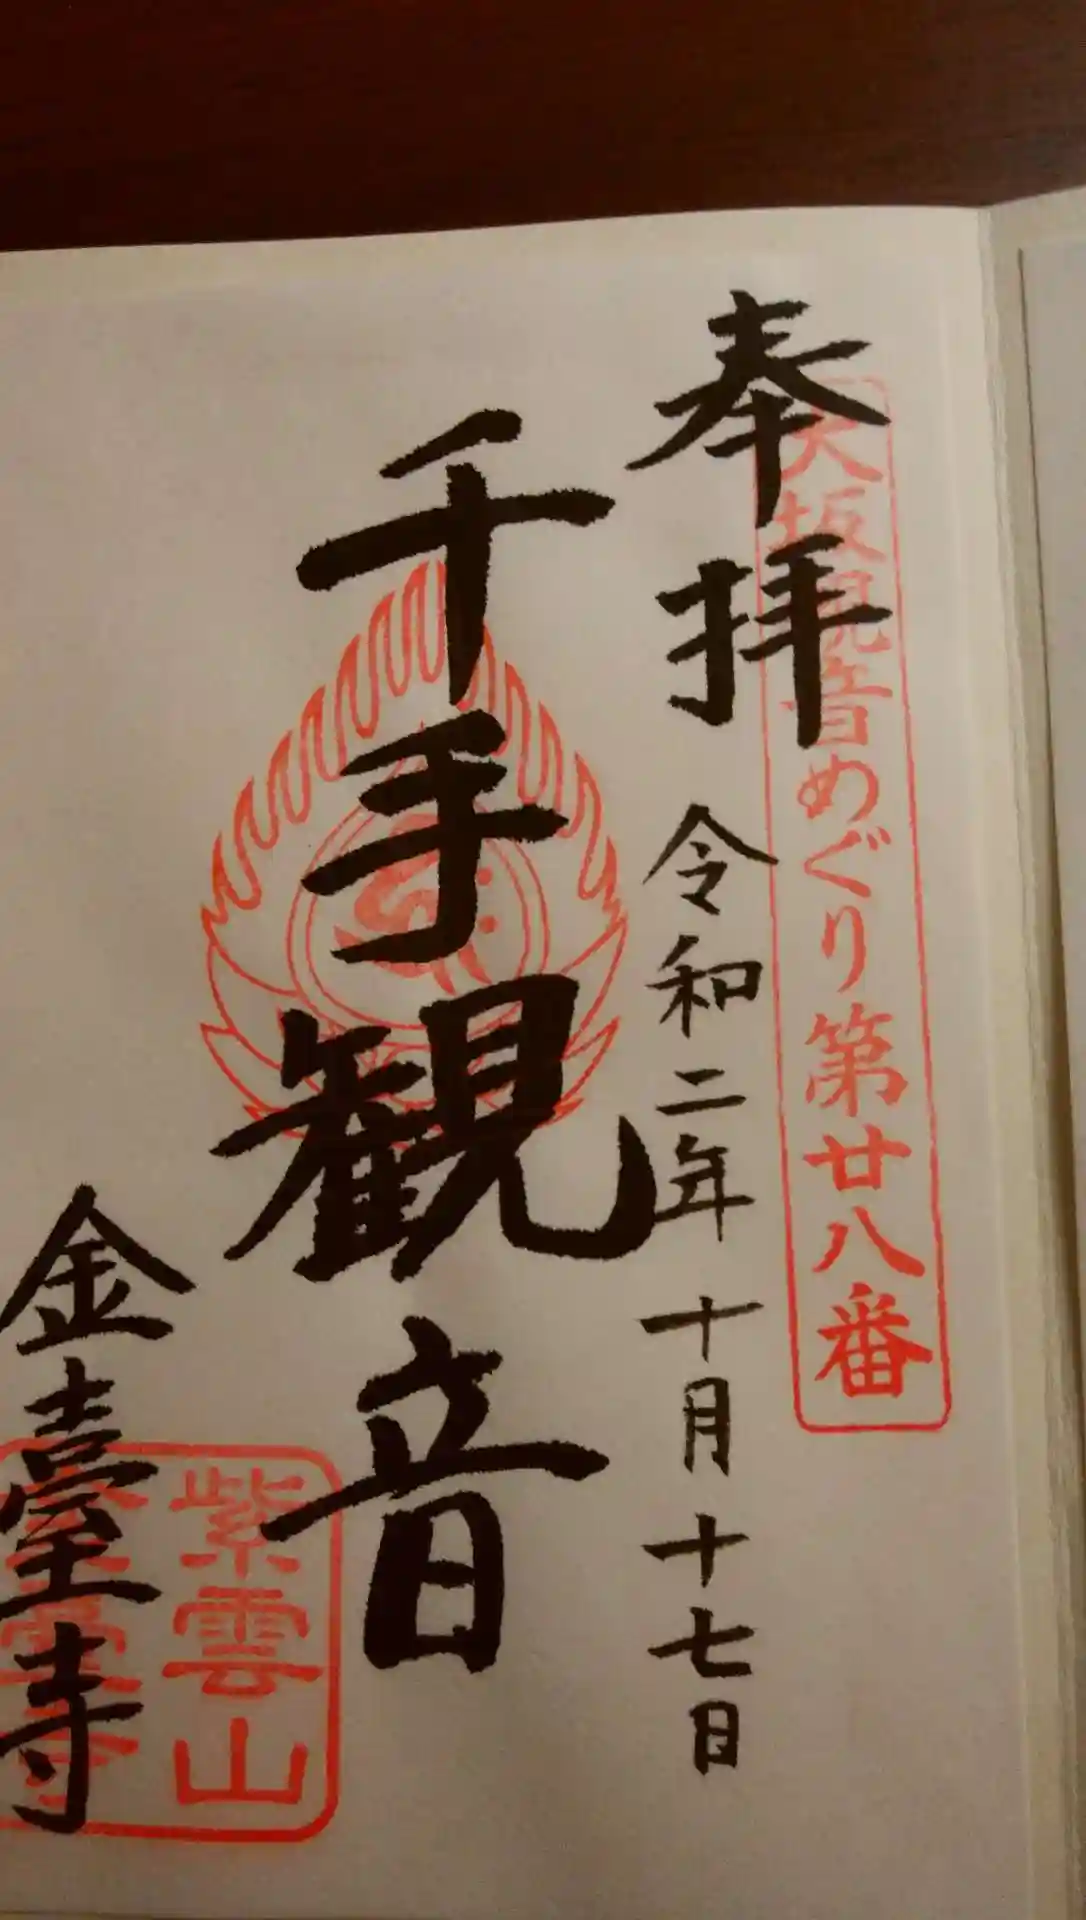 大坂観音めぐり第廿八番
奉拝
令和二年十月十七日
千手観音
紫雲山
金臺寺